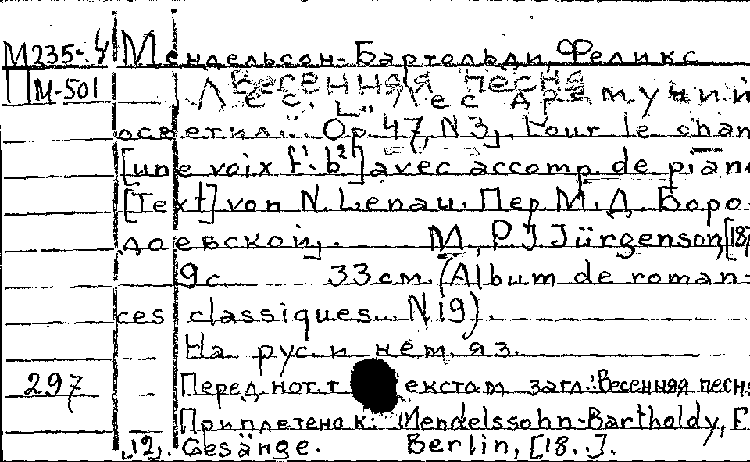 М235-4 Мендельсон-Бартольди, Феликс
М-501 Весенняя песня
Лес. ["Лес дремучий
осветил." Op. 47, N 3]. Pour le chan
[une voix f'-b²] avec accomp. de piano
[Text] von N. Lenau. Пер М. Д. Боро-
даевской]. М., P. J. Jürgenson, [18
9с. 33см. (Album de roman-
ces classiques... N 19).
На рус. и нем. яз.
297 Перед нот. текстом загл.: Весенняя песня
Приплетено к: Mendelssohn-Bartholdy, F.
12. Gesänge. Berlin, [18. .].